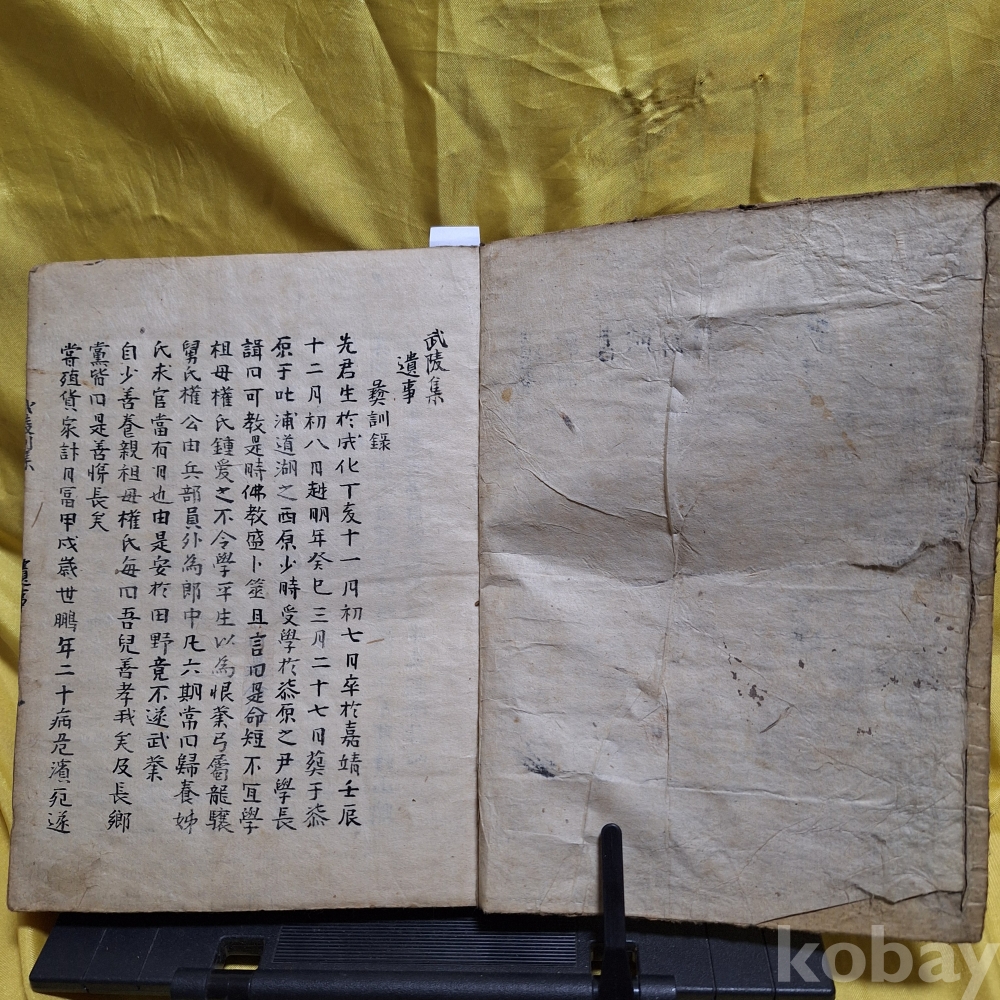 武陵集
遺事
彝訓錄
先君生於成化丁亥十一月初七日卒於嘉靖壬辰
十二月初八日越明年癸巳三月二十七日葬于漆
原于吐浦道湖之西原少時受學於漆原之尹學長
諱曰可教是時佛教盛卜筮且言曰是命短不宜學
祖母權氏鍾愛之不令學平生以為恨業弓屬龍驤
舅氏權公由兵部員外為郎中凡六期常曰歸養姊
氏求官當有日也由是安於田野竟不遂武業
自少善養親祖母權氏每曰吾兒善孝我矣及長鄉
黨皆曰是善悌長矣
嘗殖貨家計日富甲戌歲世鵬年二十病危濱死遂
kobay